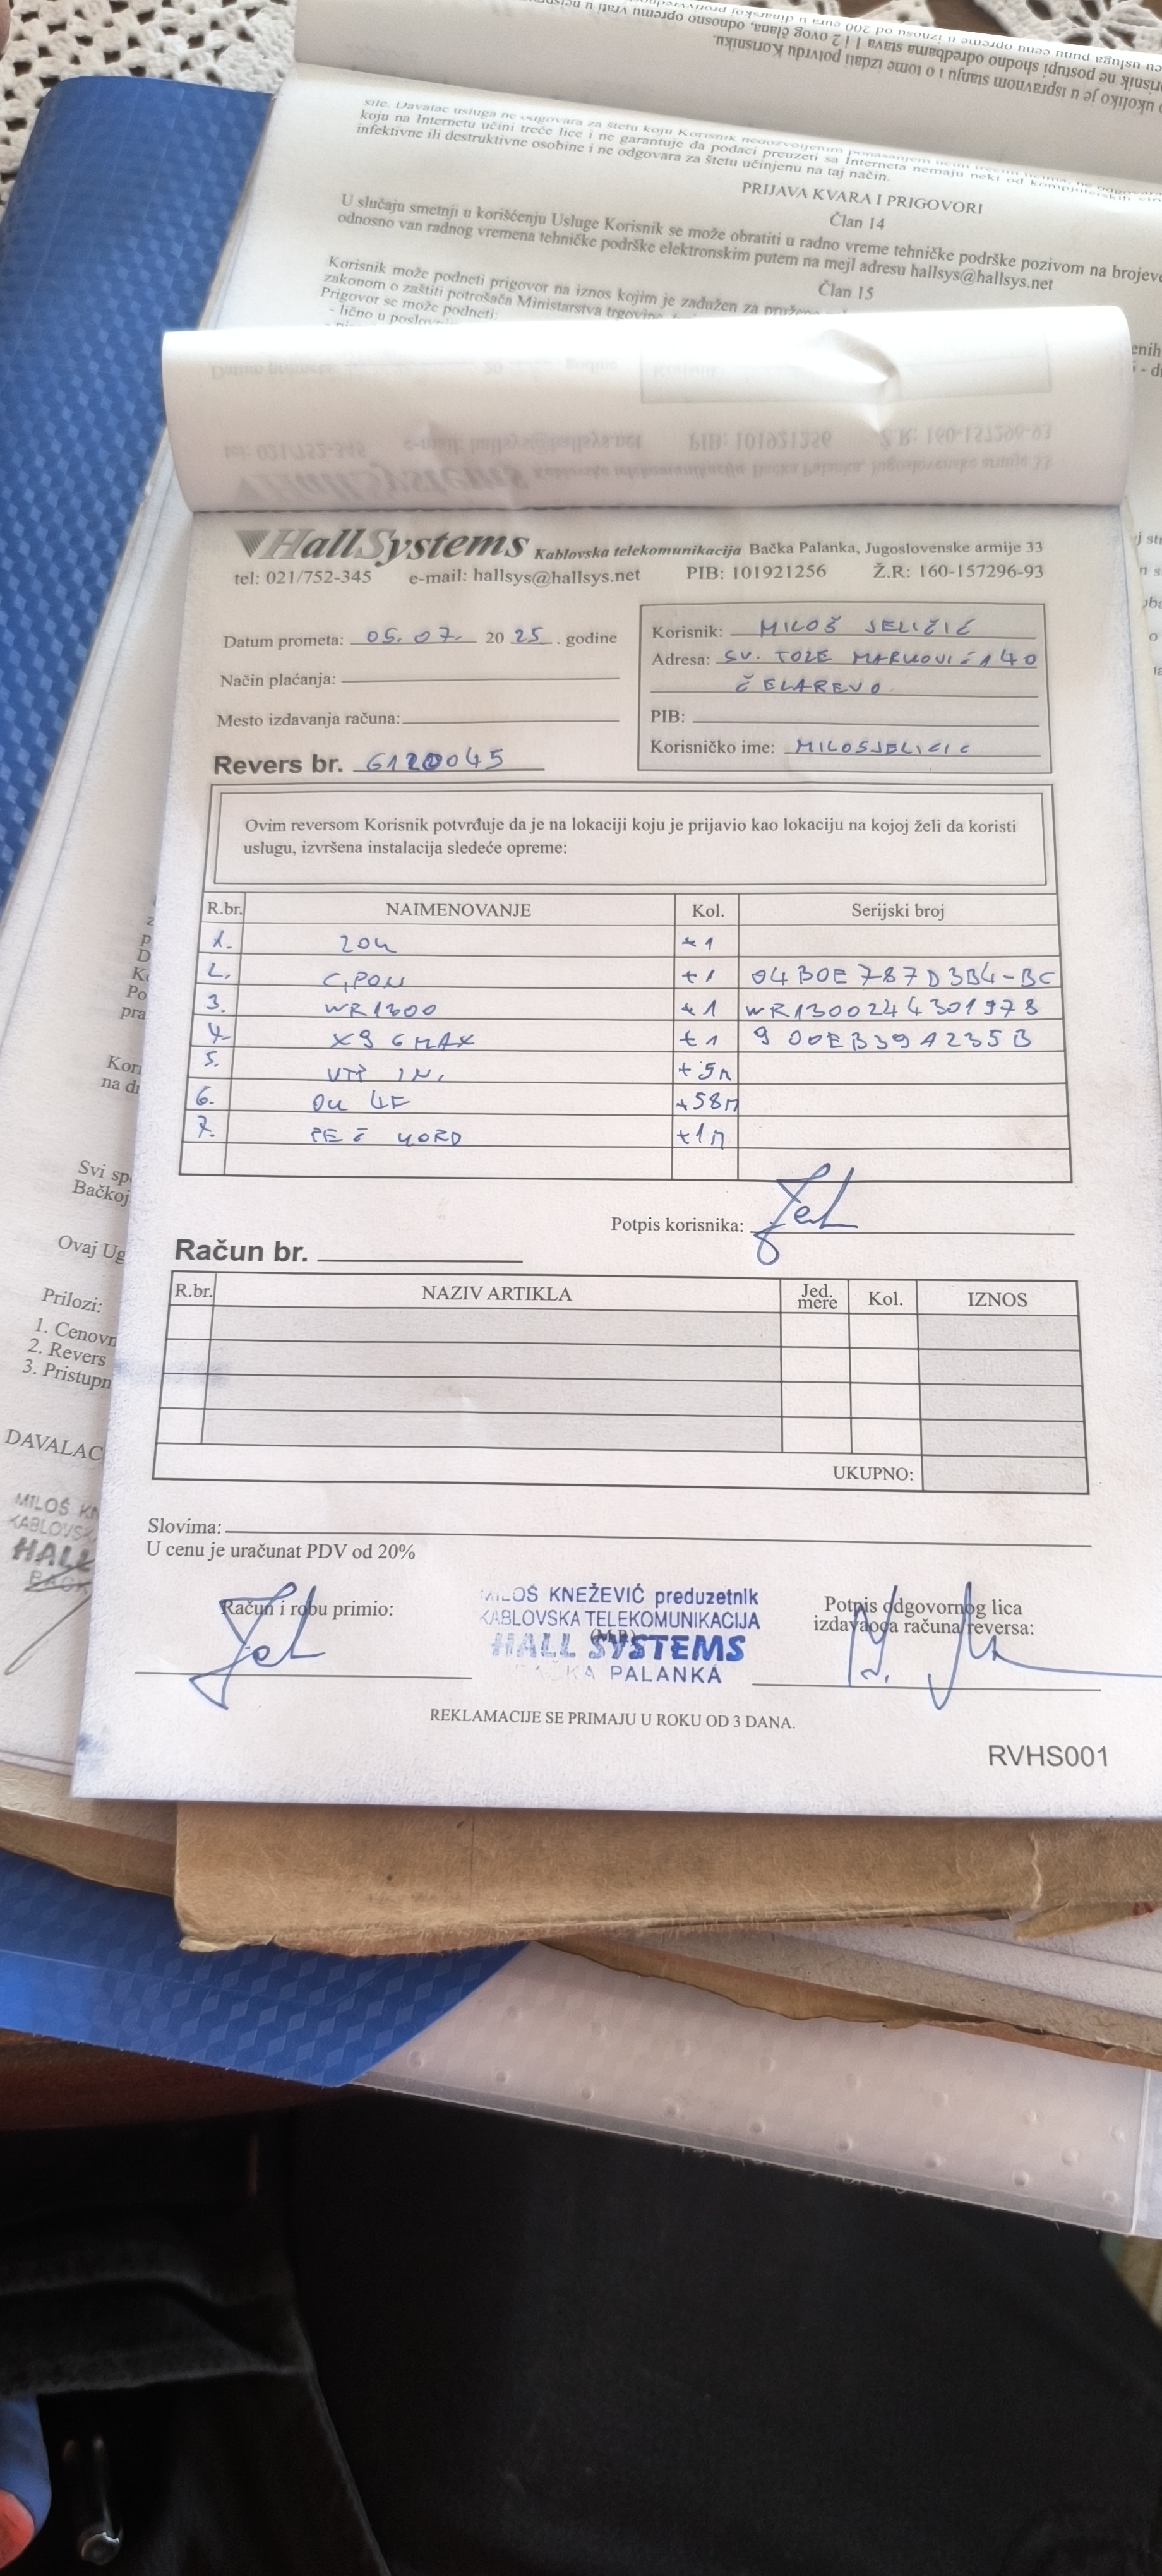 cu usluga punu cenu opreme u iznosu od 200 eura u dinarskoj
risnik ne postupi shodno odredbama stava 1 i 2 ovog člana, odnosno opremu vrati u
o ukoliko je u ispravnom stanju i o tome izdati potvrdu Korisniku.
koju na Internetu učini treće lice i ne garantuje da podaci preuzeti sa Interneta nemaju neki od
infektivne ili destruktivne osobine i ne odgovara za štetu učinjenu na taj način.
PRIJAVA KVARA I PRIGOVORI
Član 14
U slučaju smetnji u korišćenju Usluge Korisnik se može obratiti u radno vreme tehničke podrške pozivom na brojeve
odnosno van radnog vremena tehničke podrške elektronskim putem na mejl adresu hallsys@hallsys.net
Član 15
Korisnik može podneti prigovor na iznos kojim je zadužen za
zakonom o zaštiti potrošača Ministarstva trgovine,
Prigovor se može podneti:
- lično u
HallSystems Kablovska telekomunikacija Bačka Palanka, Jugoslovenske armije 33
tel: 021/752-345 e-mail: hallsys@hallsys.net PIB: 101921256 Ž.R: 160-157296-93
Datum prometa: 05.07. 20 25 . godine
Korisnik: MILOŠ JELIČIĆ
Adresa: SV. TOZE MARKOVIĆA 40
ČELAREVO
Način plaćanja:
Mesto izdavanja računa:
PIB:
Korisničko ime: MILOSJELICIC
Revers br. 6120045
Ovim reversom Korisnik potvrđuje da je na lokaciji koju je prijavio kao lokaciju na kojoj želi da koristi
uslugu, izvršena instalacija sledeće opreme:
R.br. NAIMENOVANJE Kol. Serijski broj
1. ZOK +1
2. GPON +1 04B0E787D3B4-BC
3. WR1300 +1 WR1300244301978
4. X96MAX +1 900EB39A235B
5. UTP IN. +5m
6. OK 4F +58m
7. PEČ KORD +1m
Potpis korisnika:
Račun br.
R.br. NAZIV ARTIKLA Jed. mere Kol. IZNOS
UKUPNO:
Slovima:
U cenu je uračunat PDV od 20%
Račun i robu primio:
MILOŠ KNEŽEVIĆ preduzetnik
KABLOVSKA TELEKOMUNIKACIJA
HALL SYSTEMS
BAČKA PALANKA
Potpis odgovornog lica
izdavaoca računa/reversa:
REKLAMACIJE SE PRIMAJU U ROKU OD 3 DANA.
RVHS001
Kori
na dr
Svi sp
Bačkoj
Ovaj Ug
Prilozi:
1. Cenovn
2. Revers
3. Pristupn
DAVALAC
MILOŠ KN
KABLOVSK
HALL